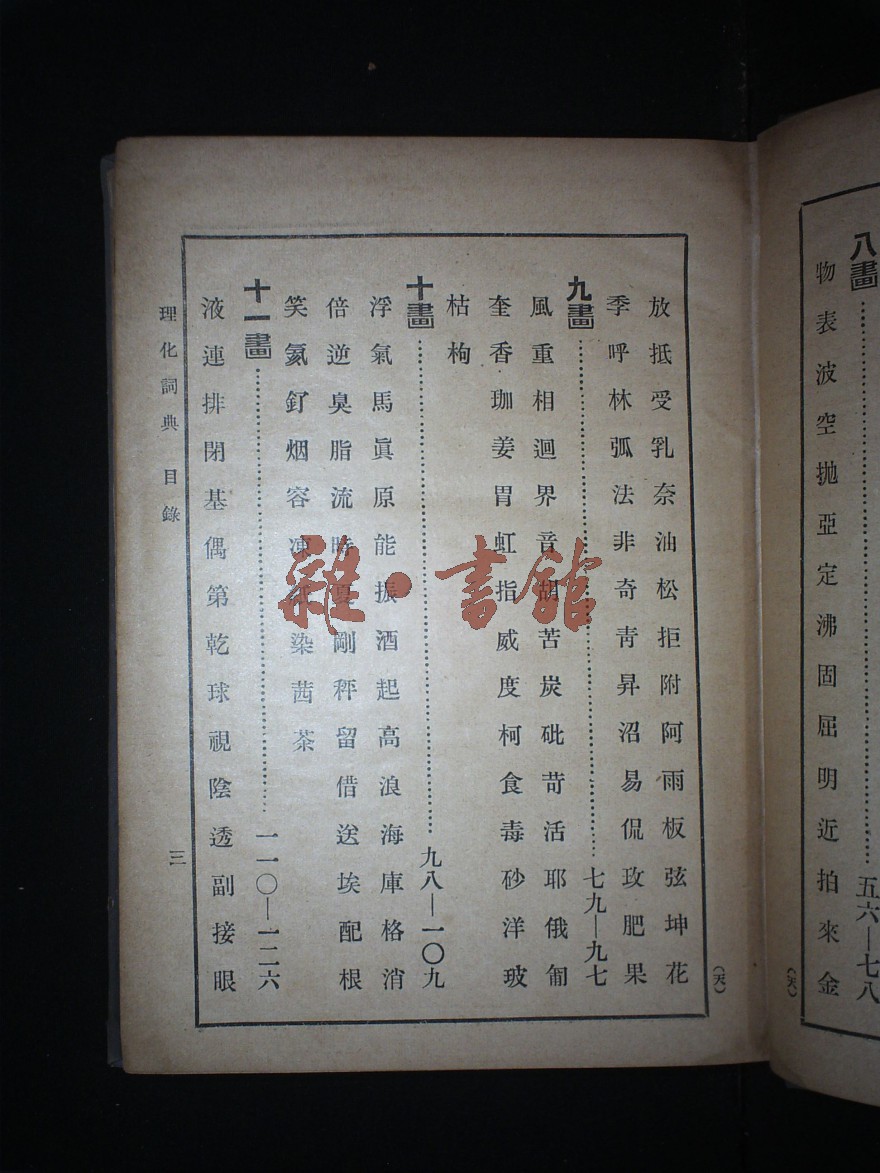 八畫……五六—七八
物表波空拋亞定沸固屈明近拍來金
(天)
放抵受乳奈油松拒附阿雨板弦坤花
季呼林弧法非奇靑昇沼易侃玫肥果
九畫……七九—九七
風重相迴界音胡苦炭砒苛活耶俄匍
奎香珈姜胃虹指威度柯食毒砂洋玻
枯枸
十畫……九八—一〇九
浮氣馬眞原能振酒起高浪海庫格消
倍逆臭脂流時夏剛秤留借送埃配根
笑氦釕烟容凍紙染茜茶
十一畫……一一〇—一二六
液連排閉基偶第乾球視陰透副接眼
理化詞典 目錄
三
(天)
雜·書館